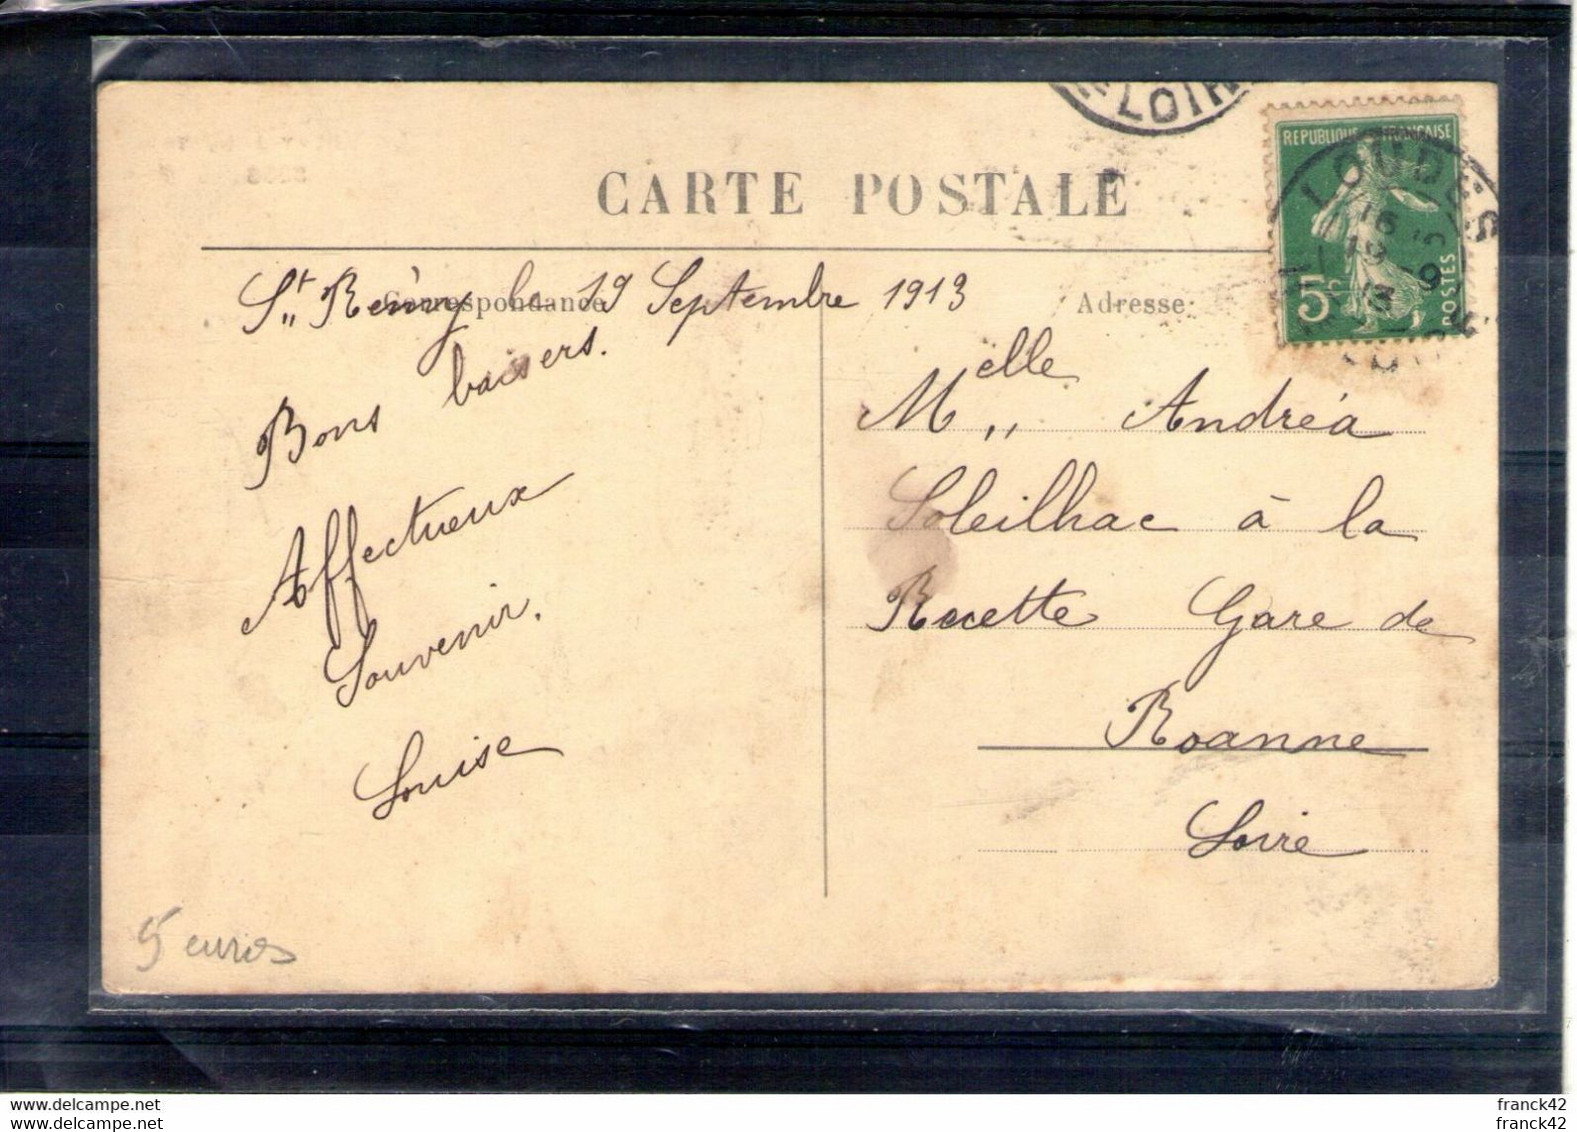 LOIR
CARTE POSTALE
REPUBLIQUE FRANÇAISE
LOUDES
16
19 - 9
13
5c
POSTES
Correspondance
Adresse
St Rémy le 19 Septembre 1913
Bons baisers.
Affectueux
Souvenir.
Louise
Melle Andréa
Soleilhac à la
Recette Gare de
Roanne
Loire
5 euros
franck42
franck42
franck42
franck42